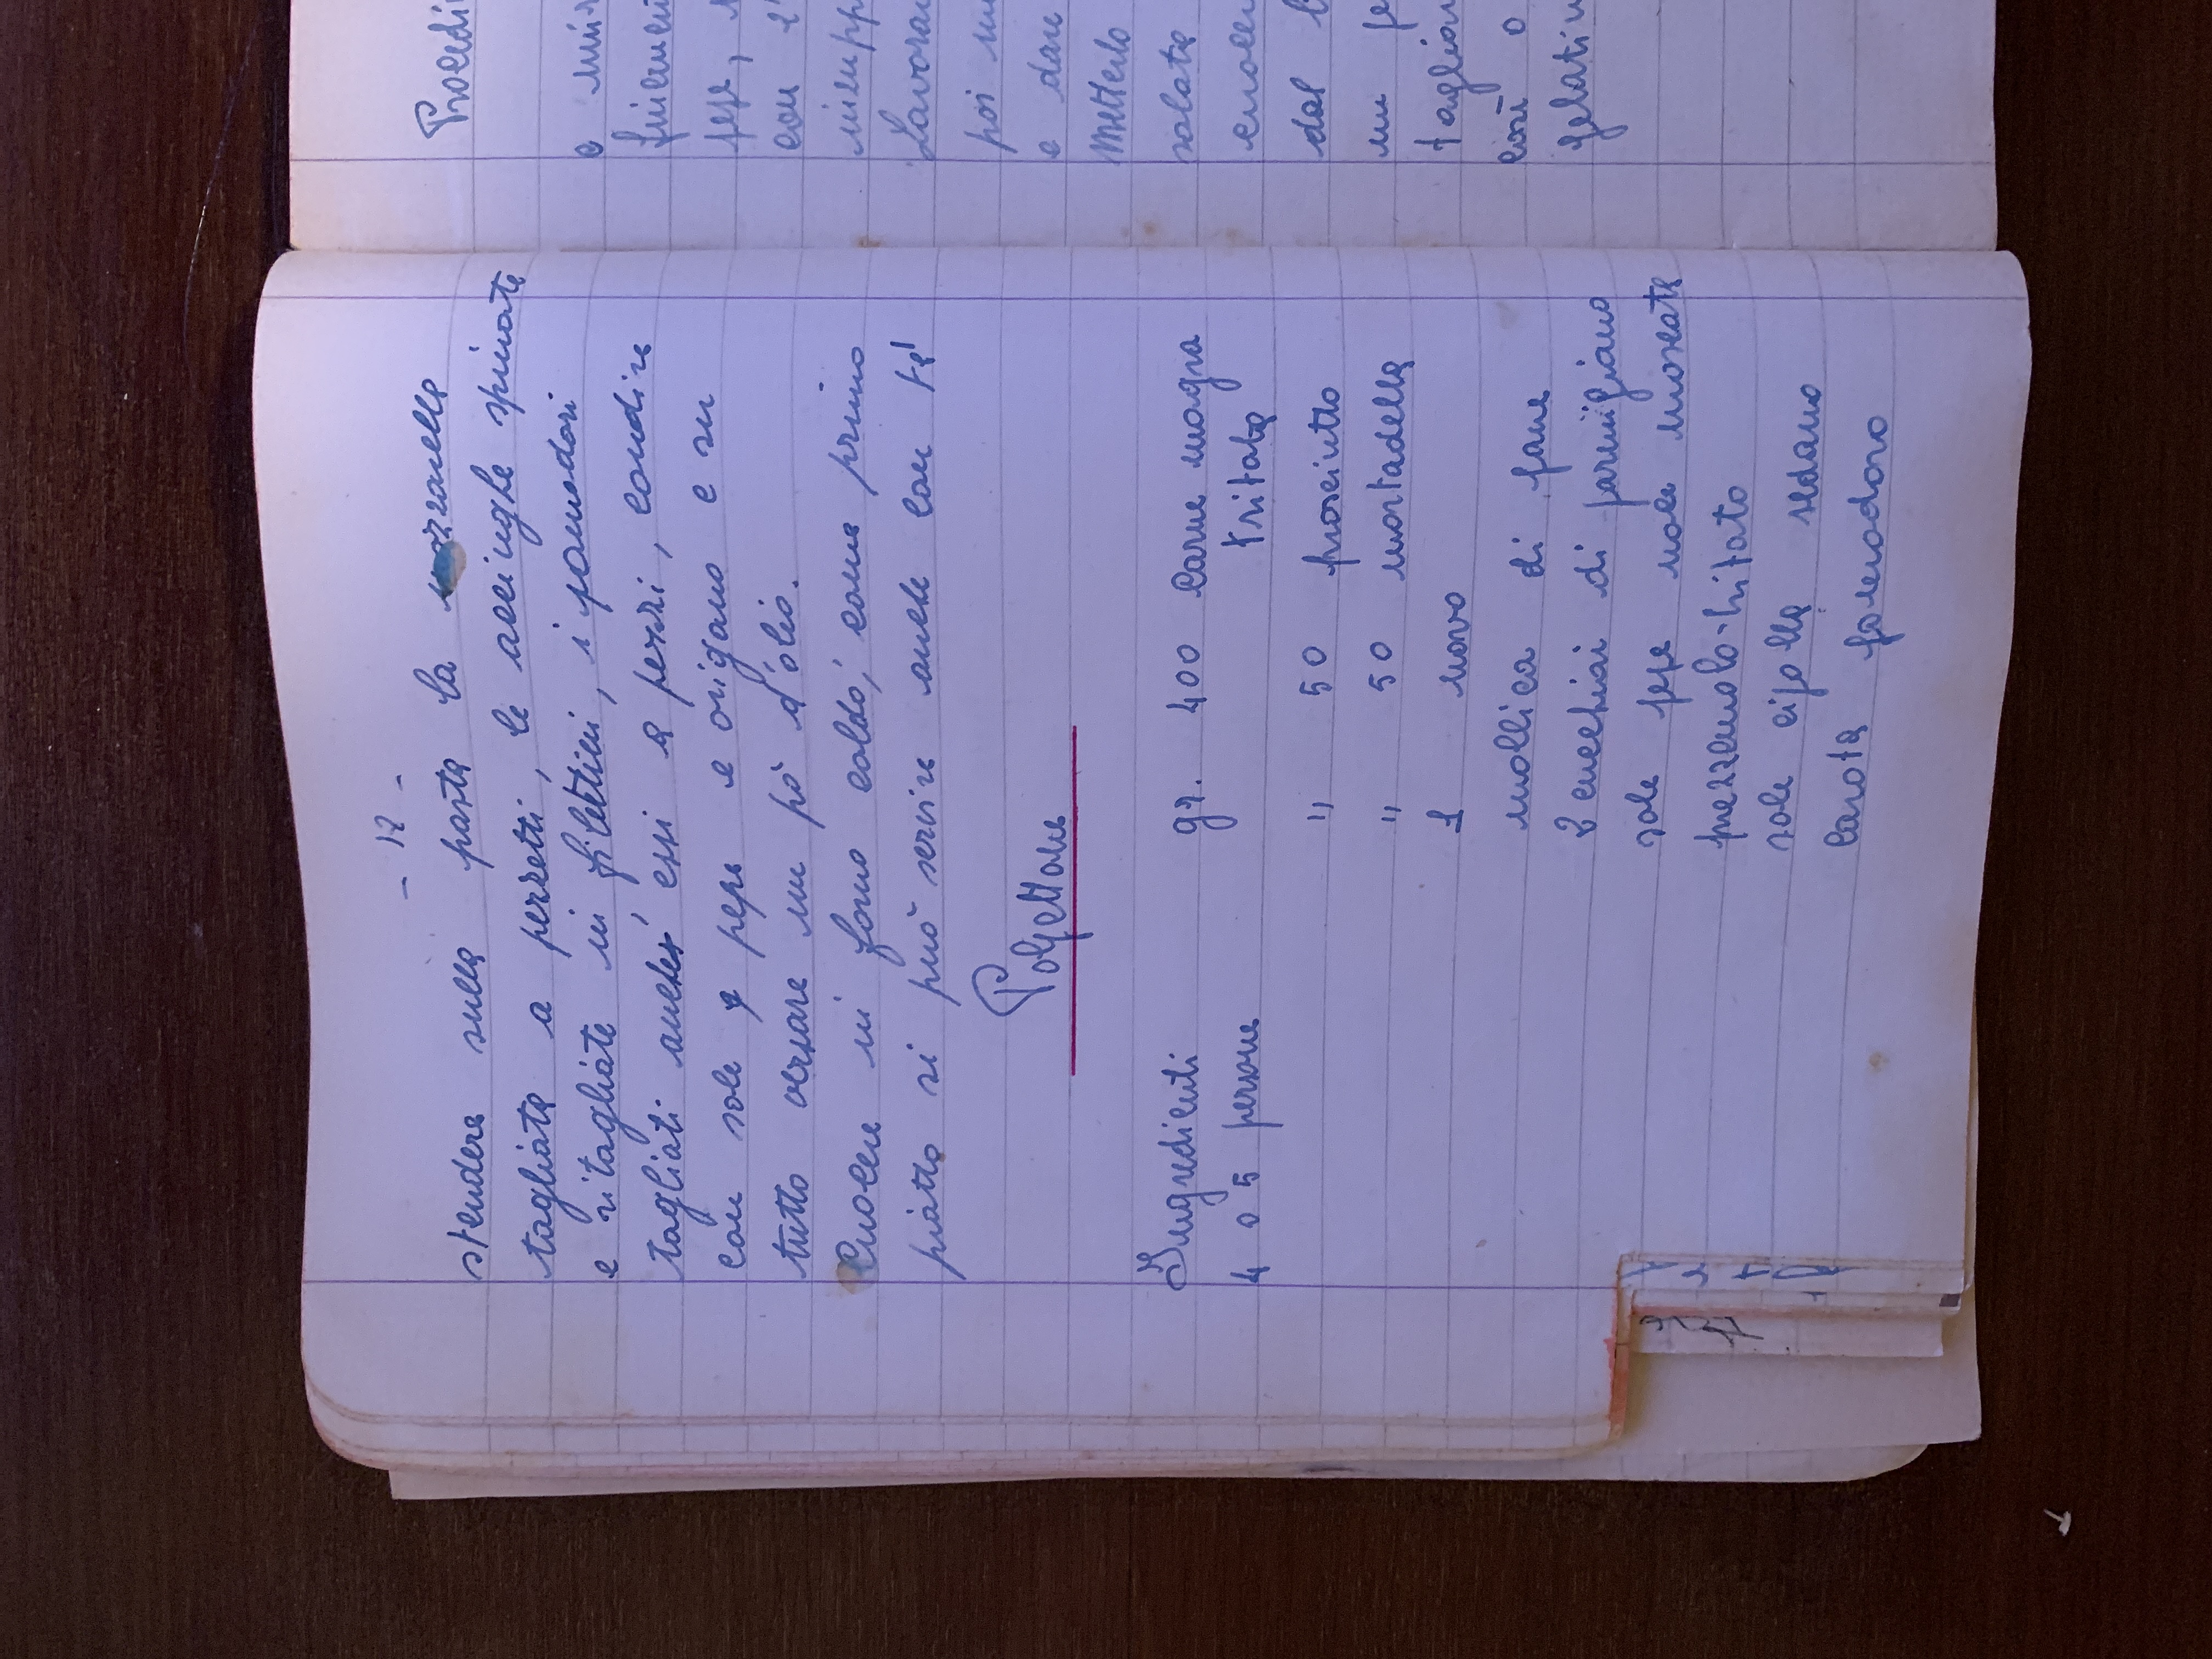 - 12 -
stendere sulla pasta la mozzarella
tagliata a pezzetti, le acciughe spinate
e ritagliate in filettini, i pomodori
tagliati anch' essi a pezzi, condire
con sale e pepe e origano e su
tutto versare un pò d'olio.
Cuocere in forno caldo, come primo
piatto si può servire anche con tè
Polpettone
Ingredienti gr. 400 carne magra
4 o 5 persone tritata
" 50 prosciutto
" 50 mortadella
1 uovo
mollica di pane
2 cucchiai di parmigiano
sale pepe noce moscata
prezzemolo tritato
sale cipolla sedano
carota pomodoro
Procedi
e
pepe,
con l'
Lavorar
poi
e dare
Metterlo
salata
dal
un
tagliar
così o
gelatin